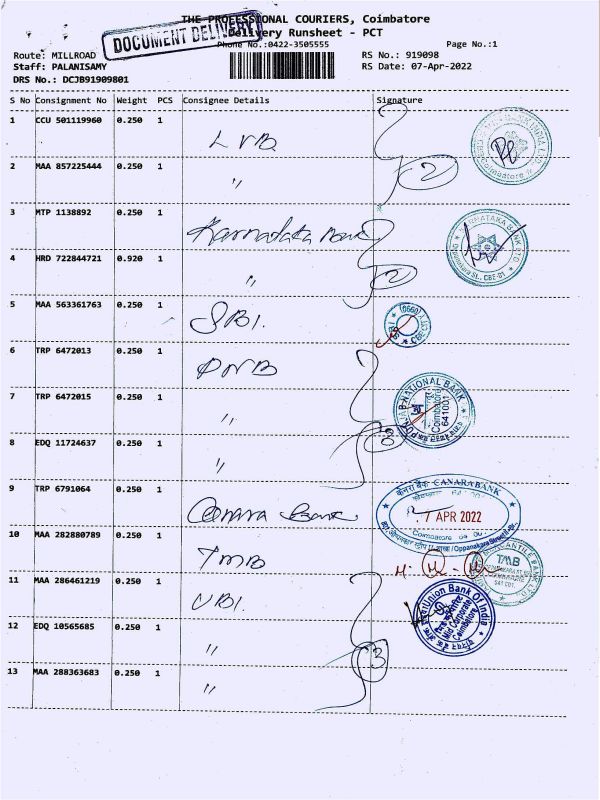 THE PROFESSIONAL COURIERS, Coimbatore
DOCUMENT DELIVERY
Delivery Runsheet - PCT
Phone No.:0422-3505555
Page No.:1
Route: MILLROAD
RS No.: 919098
Staff: PALANISAMY
RS Date: 07-Apr-2022
DRS No.: DCJB91909801
S No Consignment No Weight PCS Consignee Details Signature
1 CCU 501119960 0.250 1
LVB
2 MAA 857225444 0.250 1
〃 2
3 MTP 1138892 0.250 1
Karnataka Bank
KARNATAKA BANK LTD.
Oppanakara St., CBE-01
4 HRD 722844721 0.920 1
〃 2
5 MAA 563361763 0.250 1
SBI.
6 TRP 6472013 0.250 1
PNB
PUNJAB NATIONAL BANK
Coimbatore
641001
7 TRP 6472015 0.250 1
〃 3
8 EDQ 11724637 0.250 1
〃
9 TRP 6791064 0.250 1
Canara Bank
केनरा बैंक CANARA BANK
7 APR 2022
Coimbatore
10 MAA 282880789 0.250 1
TMB
TMB
11 MAA 286461219 0.250 1
UBI.
Union Bank Of India
Mid Corporate
Coimbatore
12 EDQ 10565685 0.250 1
〃 3
13 MAA 288363683 0.250 1
〃